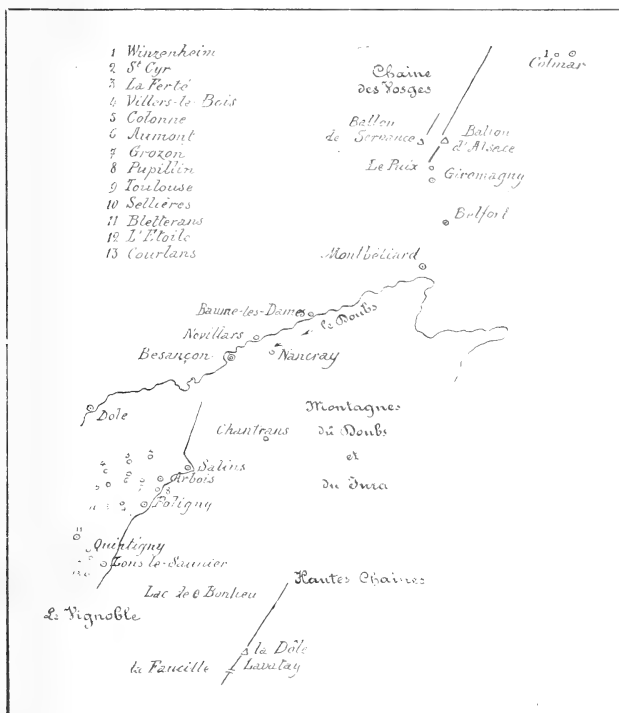 1 Winzenheim
2 St Cyr
3 La Ferté
4 Villers-le-Bois
5 Colonne
6 Aumont
7 Grozon
8 Pupillin
9 Toulouse
10 Sellières
11 Bletterans
12 L'Etoile
13 Courlans
1
Colmar
Chaine
des Vosges
Ballon
de Servance
Ballon
d'Alsace
Le Puix
Giromagny
Belfort
Montbéliard
Baume-les-Dames
le Doubs
Novillars
Besançon
Nancray
Dole
Montagnes
du Doubs
et
du Jura
Chantrans
Salins
Arbois
8
Poligny
11
Quintigny
Lons-le-Saunier
Le Vignoble
Lac de Bonlieu
Hautes Chaines
la Dôle
la Faucille
Lavatay